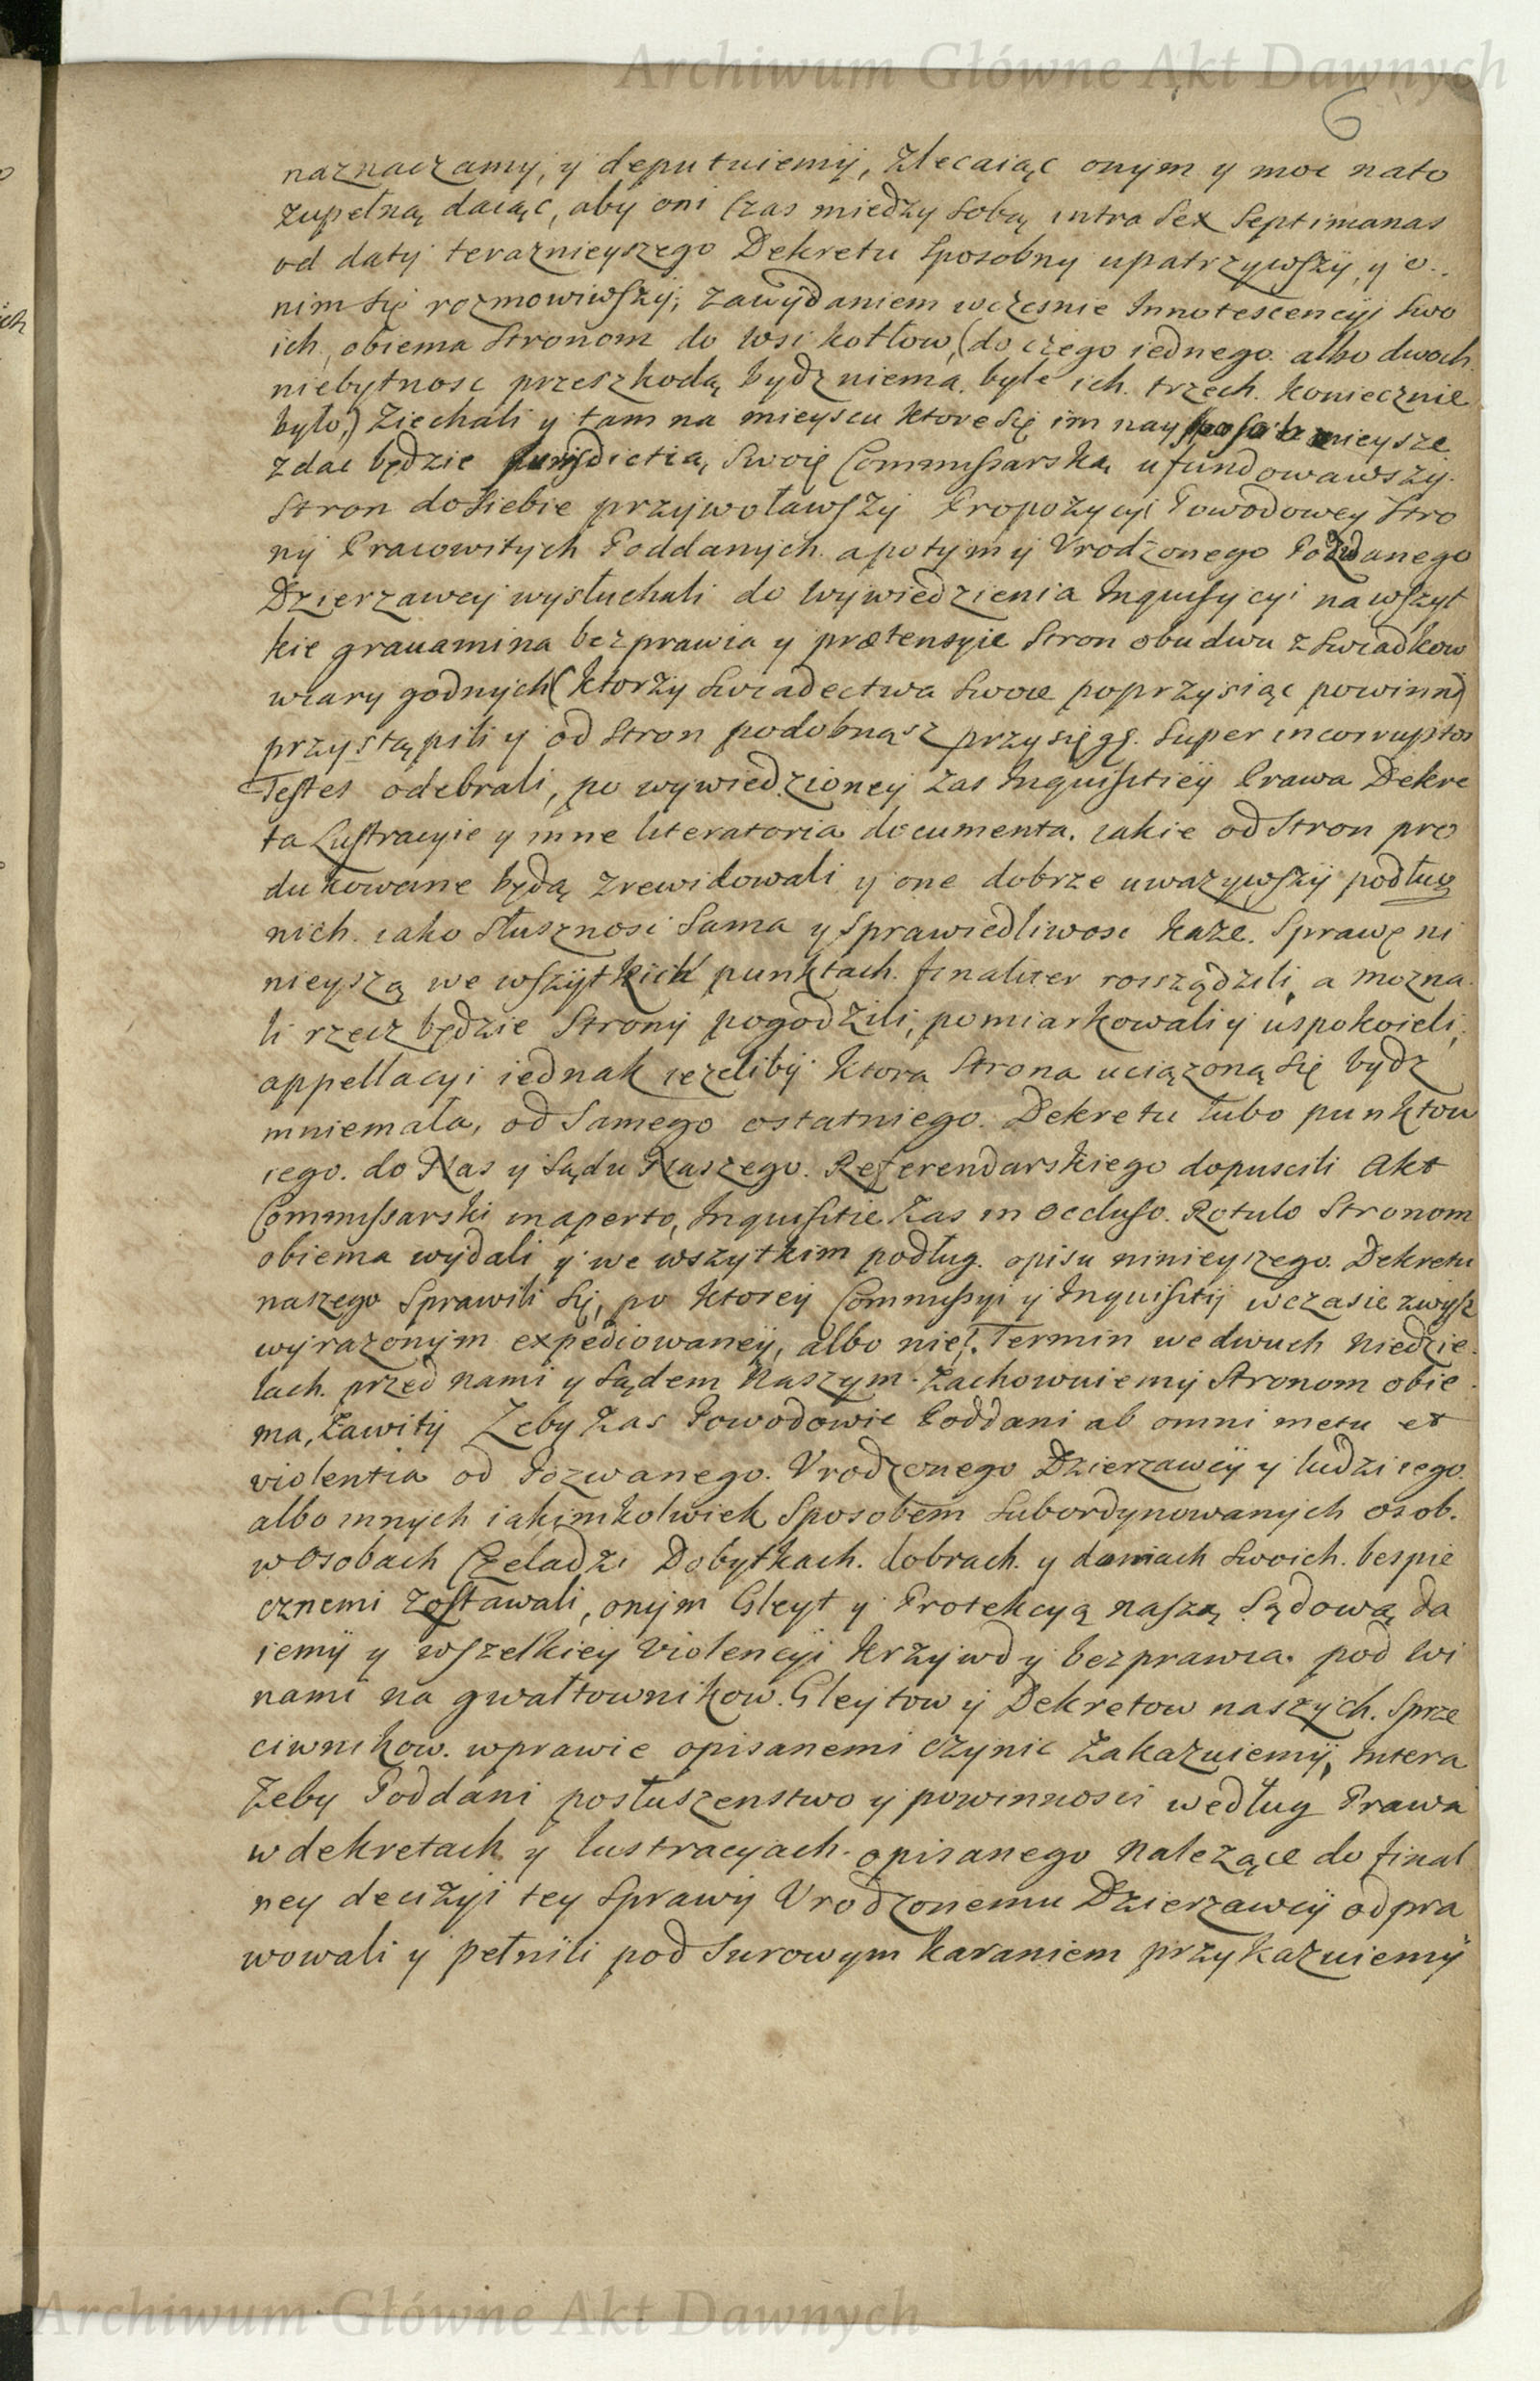 Archiwum Główne Akt Dawnych
6
naznaczamy, y deputuiemy, Zlecaiąc onym y moc nato
zupełną daiąc, aby oni Czas między sobą intra sex septimanas
od daty teraznieyszego Dekretu sposobny upatrzywszy, y o..
nim się rozmowiwszy, zawydaniem wczesnie Innotescencyi swo
ich, obiema stronom do wsi kotłow, (do czego iednego albo dwoch
niebytnosc przeszkodą bydz niema, byle ich trzech koniecznie
było,) Ziechali y tam na mieyscu ktore się im naysposobnieysze
zdac będzie Jurisdictią swoię Commissarską ufundowawszy.
Stron do siebie przywoławszy Propozycyi Powodowey Stro
ny Pracowitych Poddanych a potym y Vrodzonego Pozwanego
Dzierzawcy wysłuchali do wywiedzienia Inquisycyi na wszyt
kie grauamina bezprawia y prætensyie stron obudwu z swiadkow
wiary godnych (ktorzy swiadectwa swoie poprzysiąc powinni)
przystąpili y od stron podobnąsz przysięgę super incorruptos
Testes odebrali, po wywiedzioney zas Inquisitiey Prawa Dekre
ta Lustracyie y inne literatoria documenta, iakie od stron pro
dukowane będą zrewidowali y one dobrze uwazywszy podług
nich iako słusznosc sama y sprawiedliwosc kaze. Sprawę ni
nieyszą we wszytkich punktach finaliter rosządzili, a mozna
li rzecz będzie Strony pogodzili, pomiarkowali y uspokoieli,
appellacyi iednak iezeliby ktora strona uciązoną się bydz
mniemała, od samego ostatniego Dekretu lubo punktow
iego do Nas y sądu Naszego Referendarskiego dopuscili Akt
Commissarski in aperto, Inquisitie zas in occluso Rotulo Stronom
obiema wydali y we wszytkim podług opisu ninieyszego Dekretu
naszego sprawili się, po ktorey Commissyi y Inquisitij w czasie zwysz
wyrazonym expediowaney, albo nie, Termin we dwuch Niedzie
lach przed nami y sądem Naszym Zachowuiemy Stronom obie
ma, Zawity Zeby zas Powodowie Poddani ab omni metu et
violentia od Pozwanego Vrodzonego Dzierzawcy y ludzi iego
albo innych iakimkolwiek sposobem subordynowanych osob.
w Osobach Czeladzi Dobytkach dobrach y domach swoich bespie
cznemi zostawali, onym Gleyt y Protekcyą naszą sądową da
iemy y wszelkiey violencyi krzywd y bezprawia pod wi
nami na gwałtownikow Gleytow y Dekretow naszych sprze
ciwnikow w prawie opisanemi czynic Zakazuiemy, Intera
Zeby Poddani posłuszenstwo y powinnosci według Prawa
w dekretach y lustracyach opisanego Należące do final
ney decizyi tey sprawy Vrodzonemu Dzierzawcy odpra
wowali y pełnili pod surowym karaniem przykazuiemy
Archiwum Główne Akt Dawnych